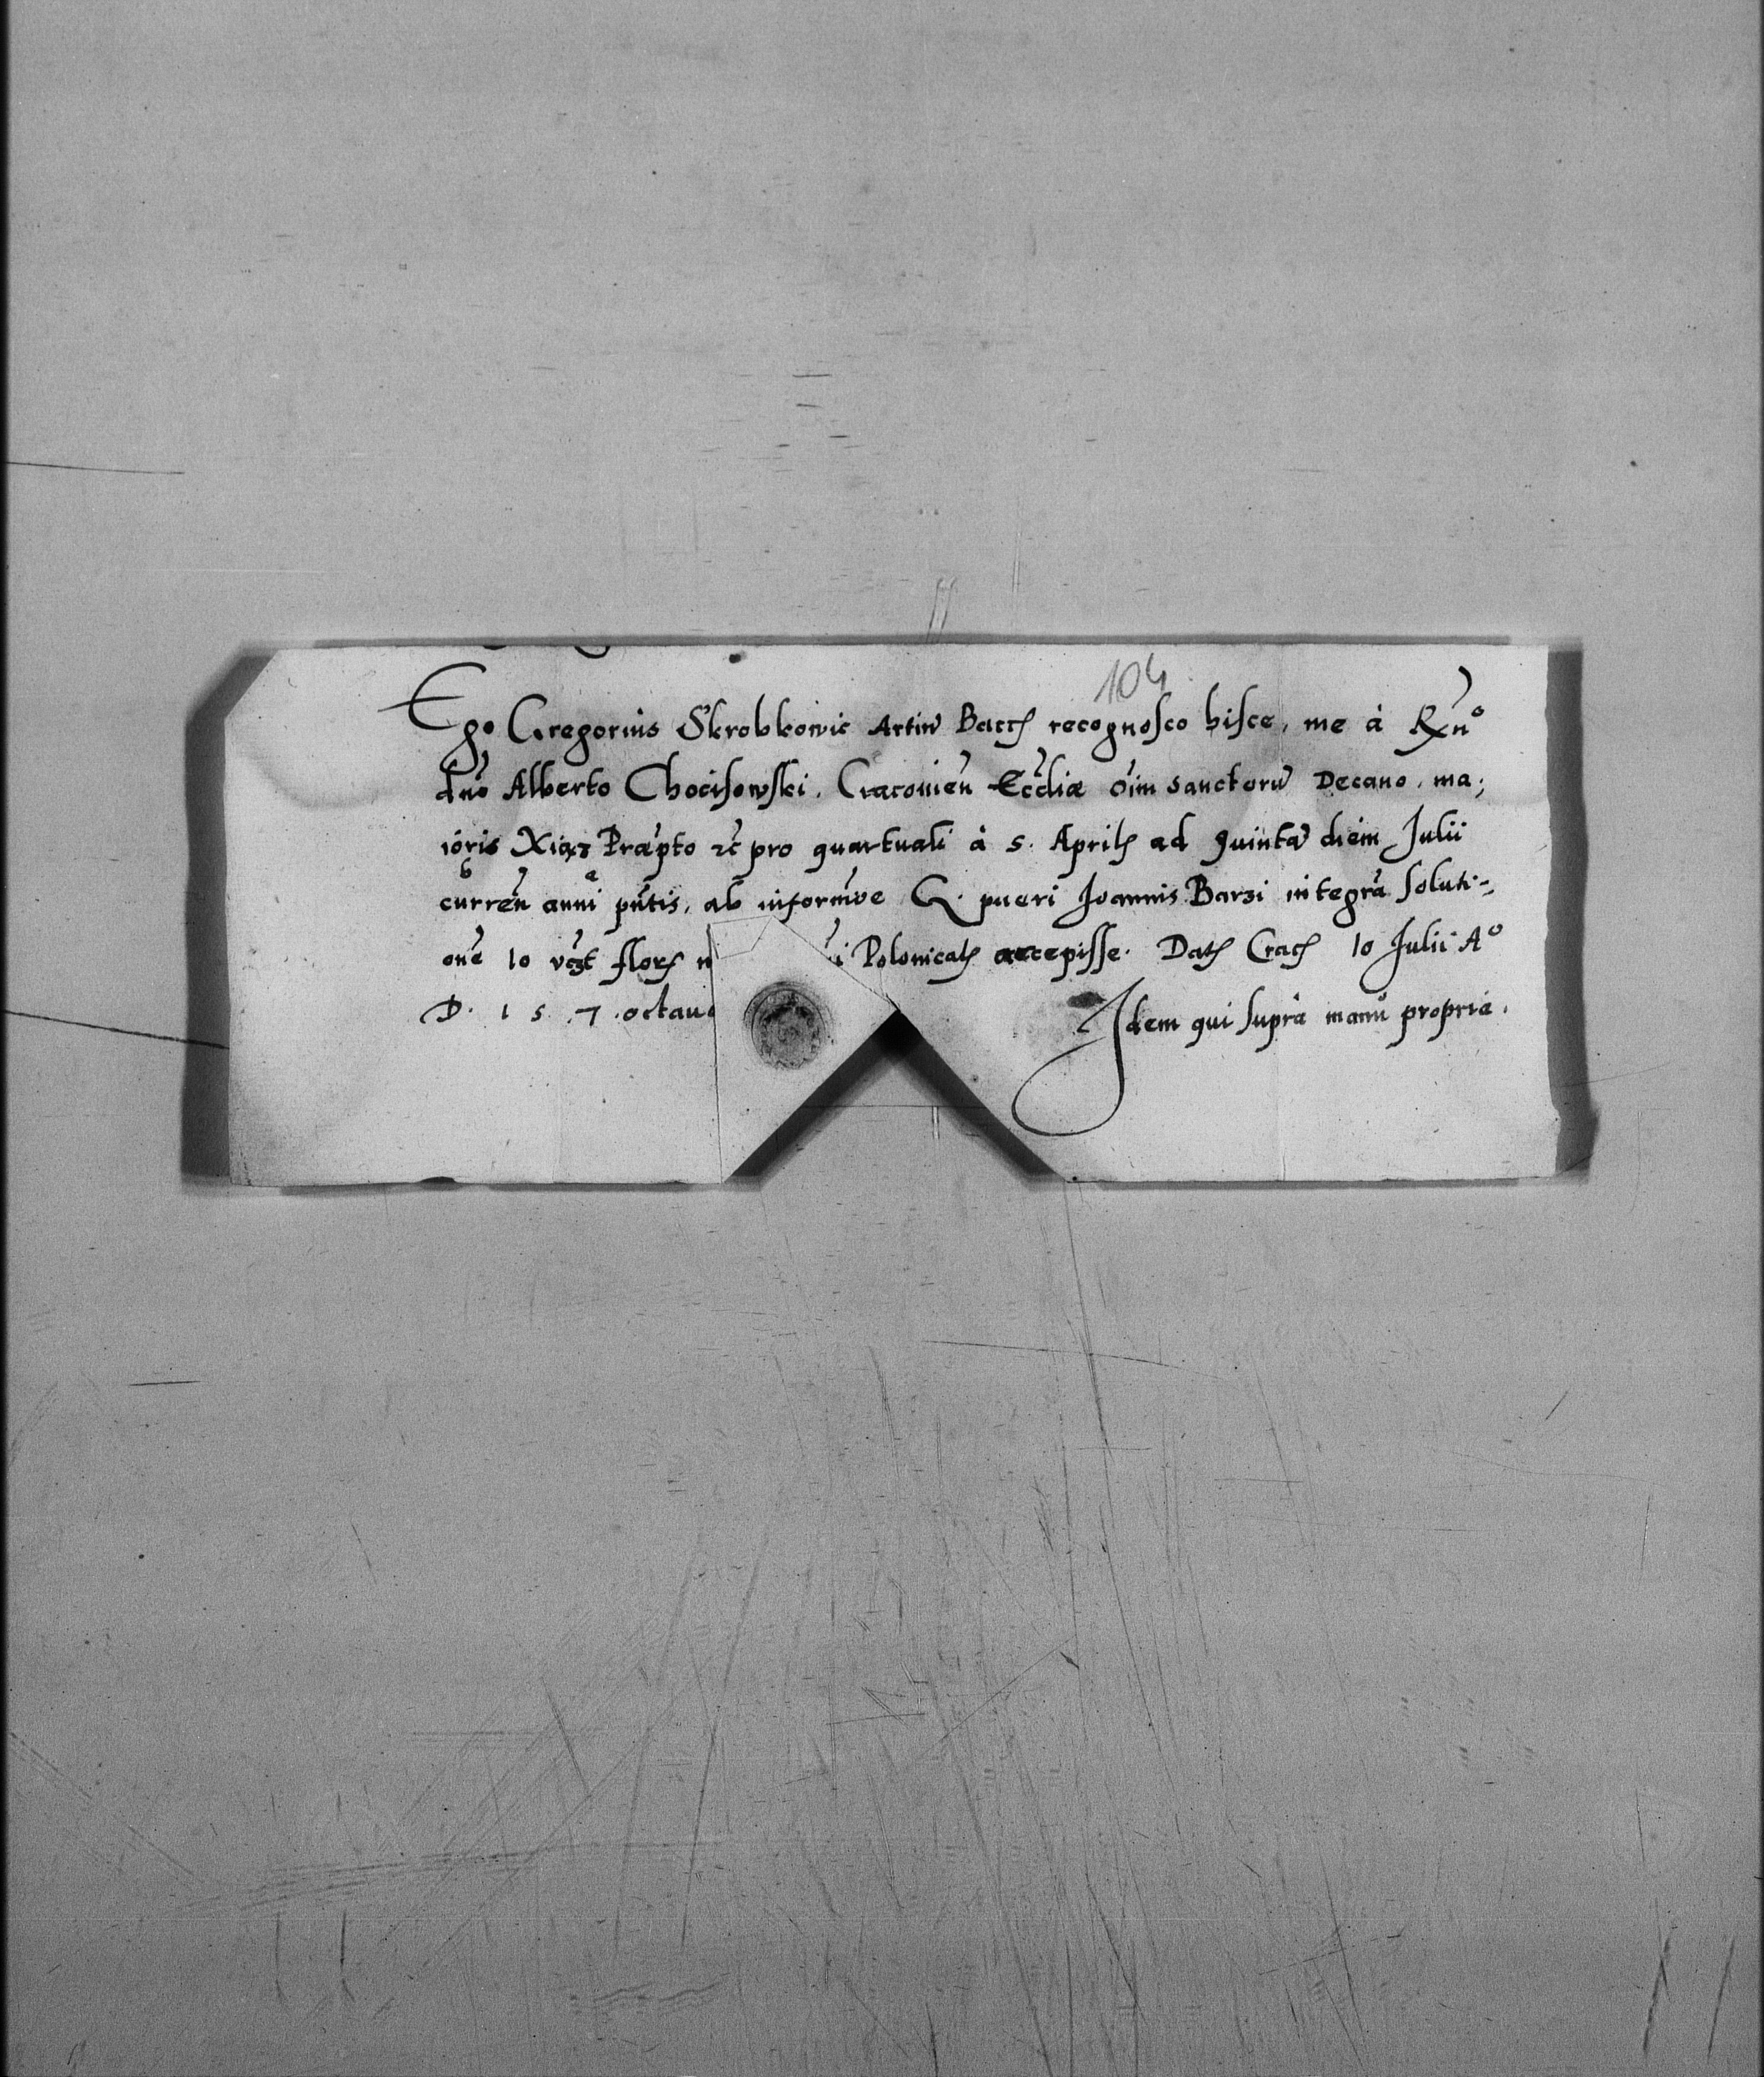 104
Ego Gregorius Skrobkowic Artiū Bacc recognosco hisce, me à Rxn̄o
dn̄o Alberto Chocisowski, Cracovien̄ Eccl̄iæ Oīm Sanctorū Decano, ma;
ioris Xiąz Præpto &c̄ pro quartuali à 5. April ad quintā diem Julii
curren̄ anni pn̄tis, ab informn̄e G. pueri Joannis Barzi integrā Soluti-
onē 10 vc̄zt flor n i Polonical accepisse. Dat Crac 10 Julii Aº
D. 1 5 .7 .octavo Idem qui suprà manu propria.